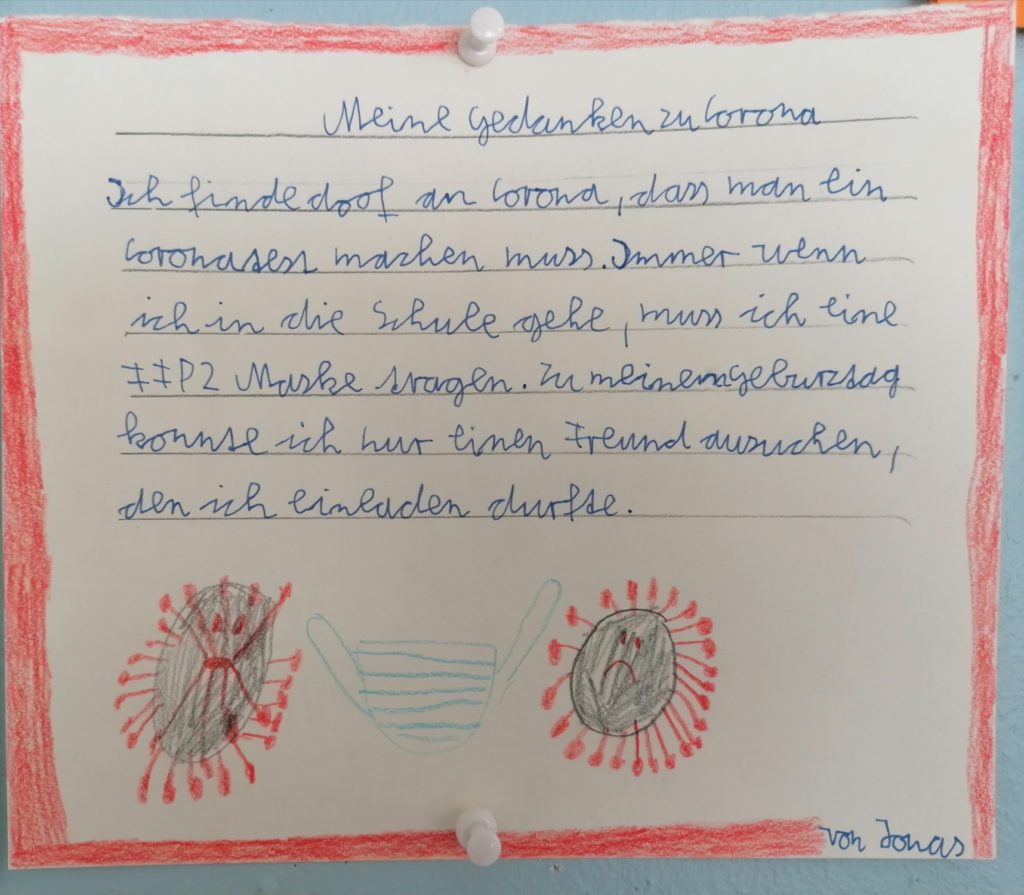 Meine Gedanken zu Corona
Ich finde doof an Corona, dass man ein
Coronatest machen muss. Immer wenn
ich in die Schule gehe, muss ich eine
FFP2 Maske tragen. Zu meinem geburtstag
konnte ich nur einen Freund ausuchen,
den ich einladen durfte.
von Jonas